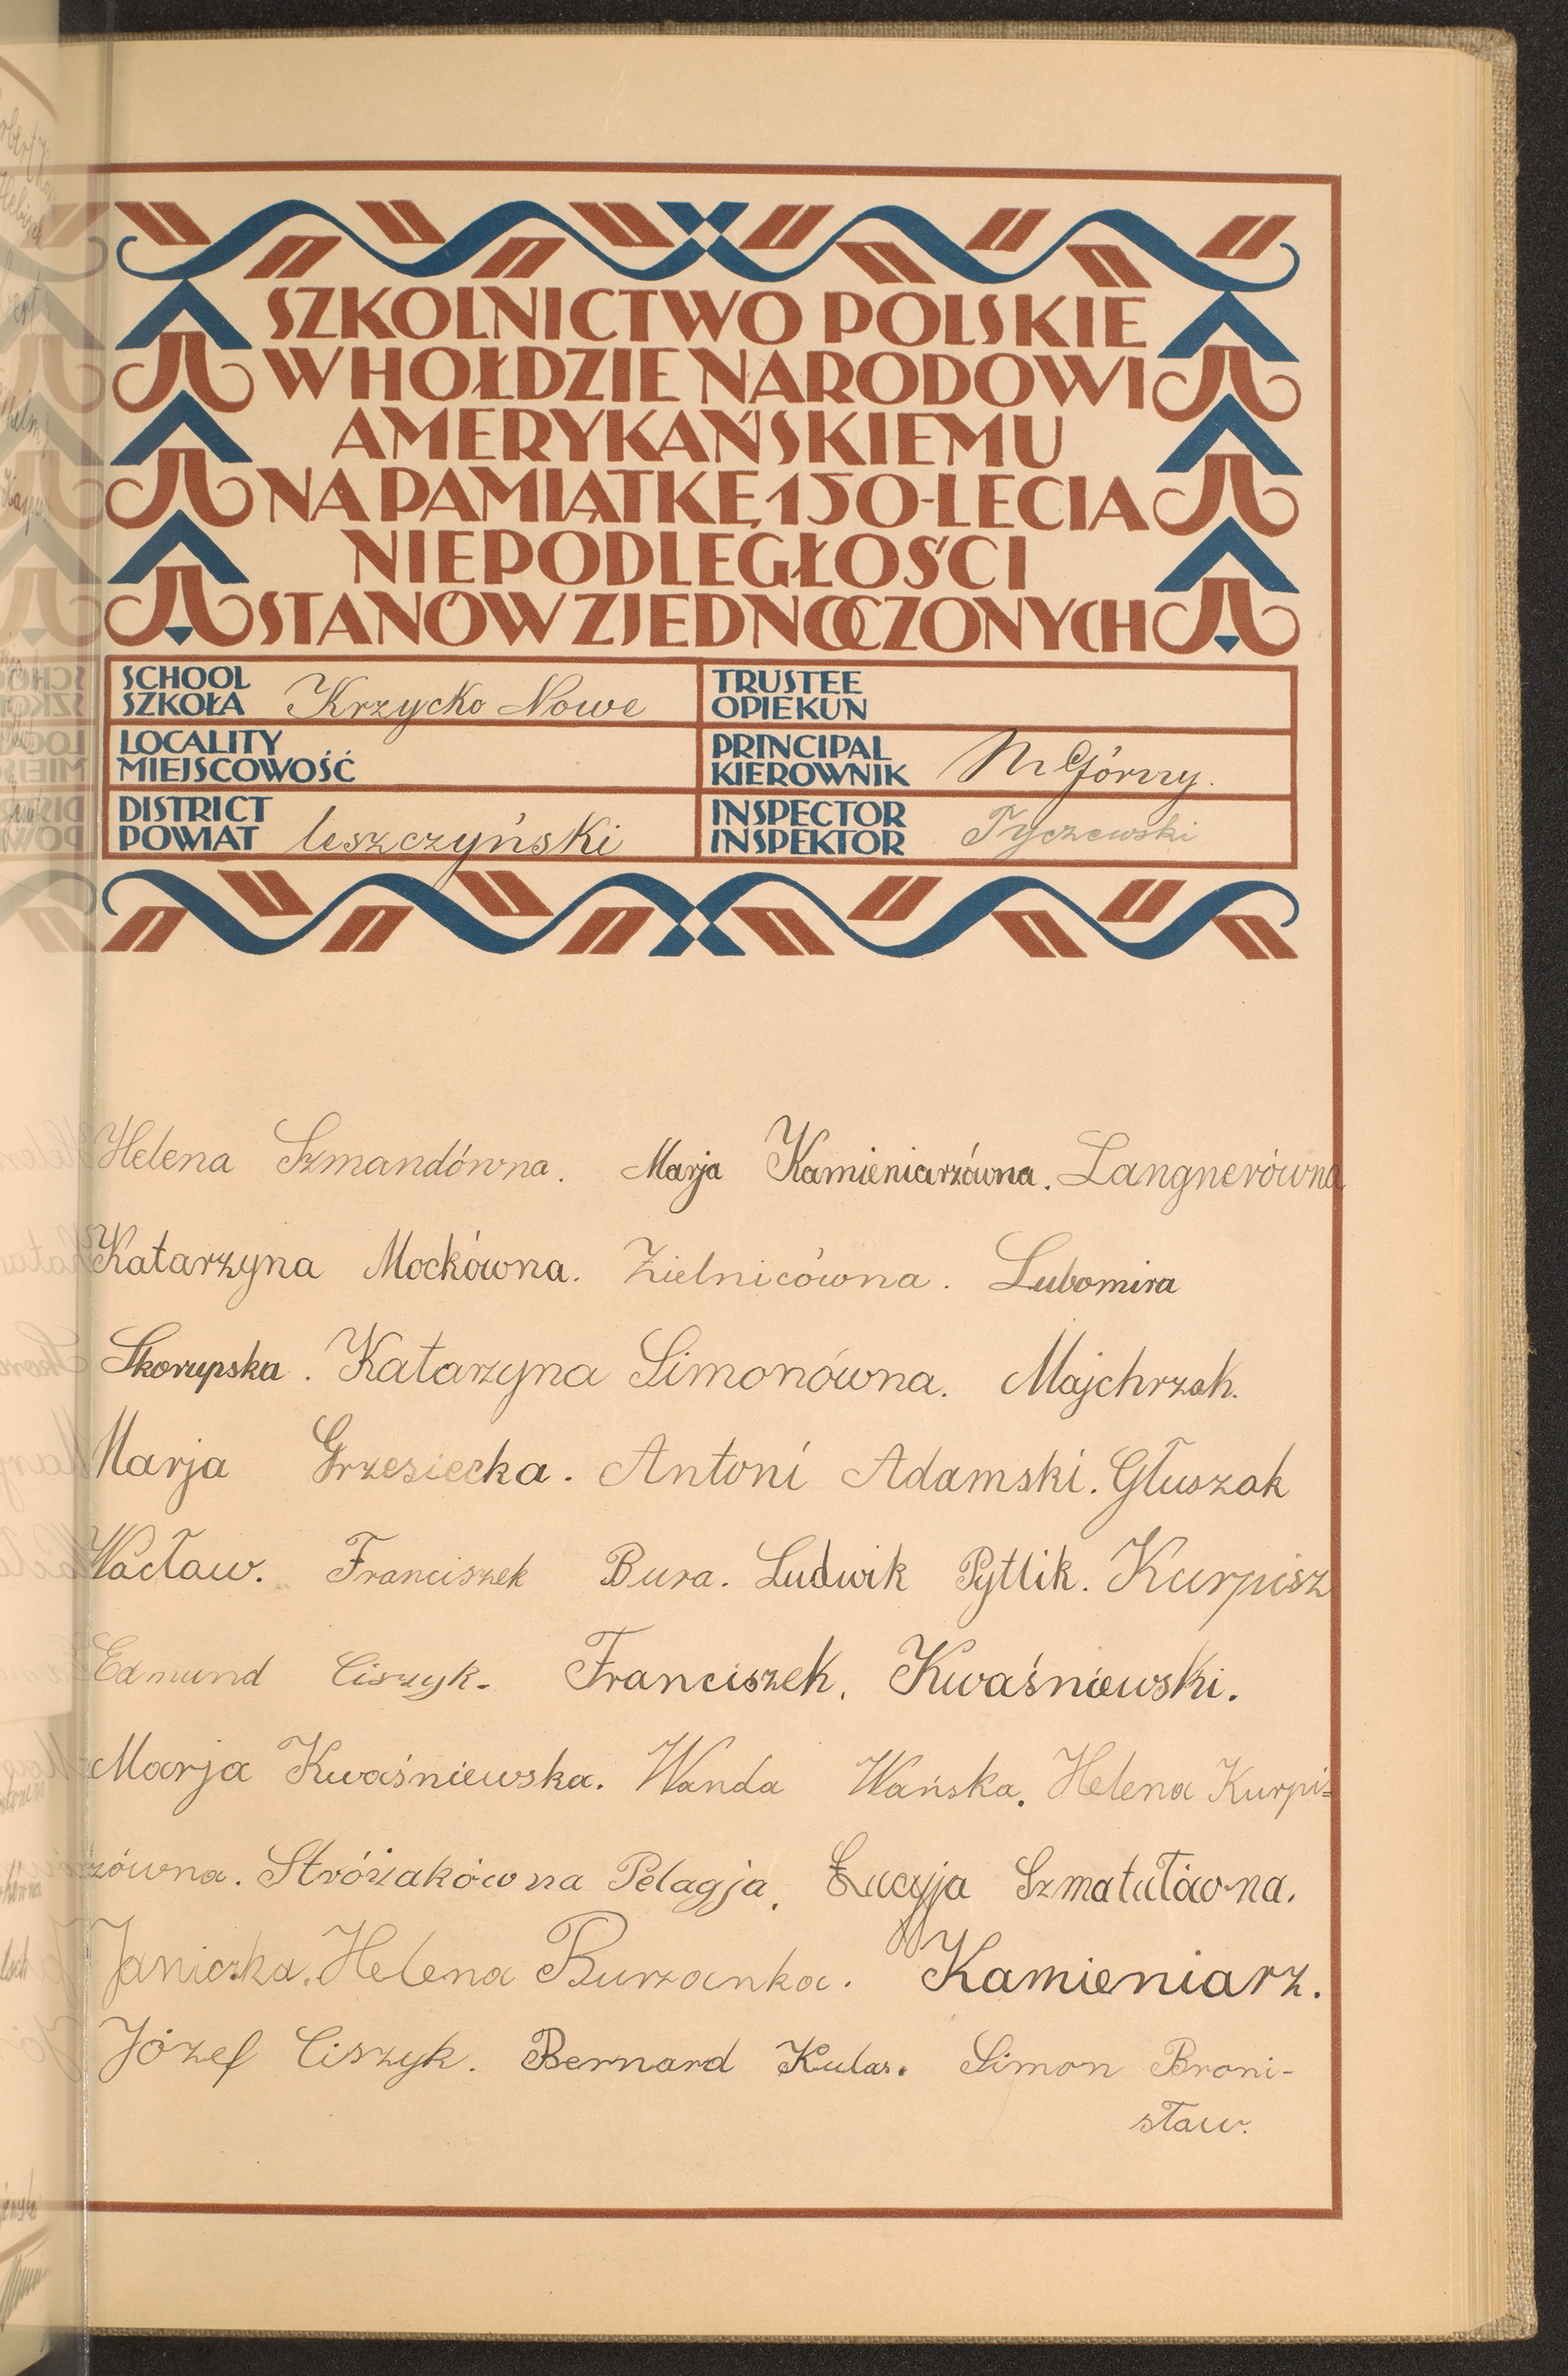 SZKOLNICTWO POLSKIE
W HOŁDZIE NARODOWI
AMERYKAŃSKIEMU
NA PAMIĄTKĘ 150-LECIA
NIEPODLEGŁOŚCI
STANÓW ZJEDNOCZONYCH
SCHOOL
SZKOŁA Krzycko Nowe
TRUSTEE
OPIEKUN
LOCALITY
MIEJSCOWOŚĆ
PRINCIPAL
KIEROWNIK Górny.
DISTRICT
POWIAT leszczyński
INSPECTOR
INSPEKTOR Tyczewski
Helena Szmandówna. Marja Kamieniarzówna. Langnerówna
Katarzyna Mockówna. Zielnicówna. Lubomira
Skorupska. Katarzyna Simonówna. Majchrzak.
Marja Grzesiecka. Antoni Adamski. Głuszak
Wacław. Franciszek Bura. Ludwik Pytlik. Kurpisz
Edmund Ciszyk. Franciszek. Kwaśniewski.
Marja Kwaśniewska. Wanda Wańska. Helena Kurpi=
szówna. Stróżakówna Pelagja. Łucyja Szmatułówna.
Janiczka. Helena Burzanka. Kamieniarz.
Józef Ciszyk. Bernard Kulas. Simon Broni-
sław.